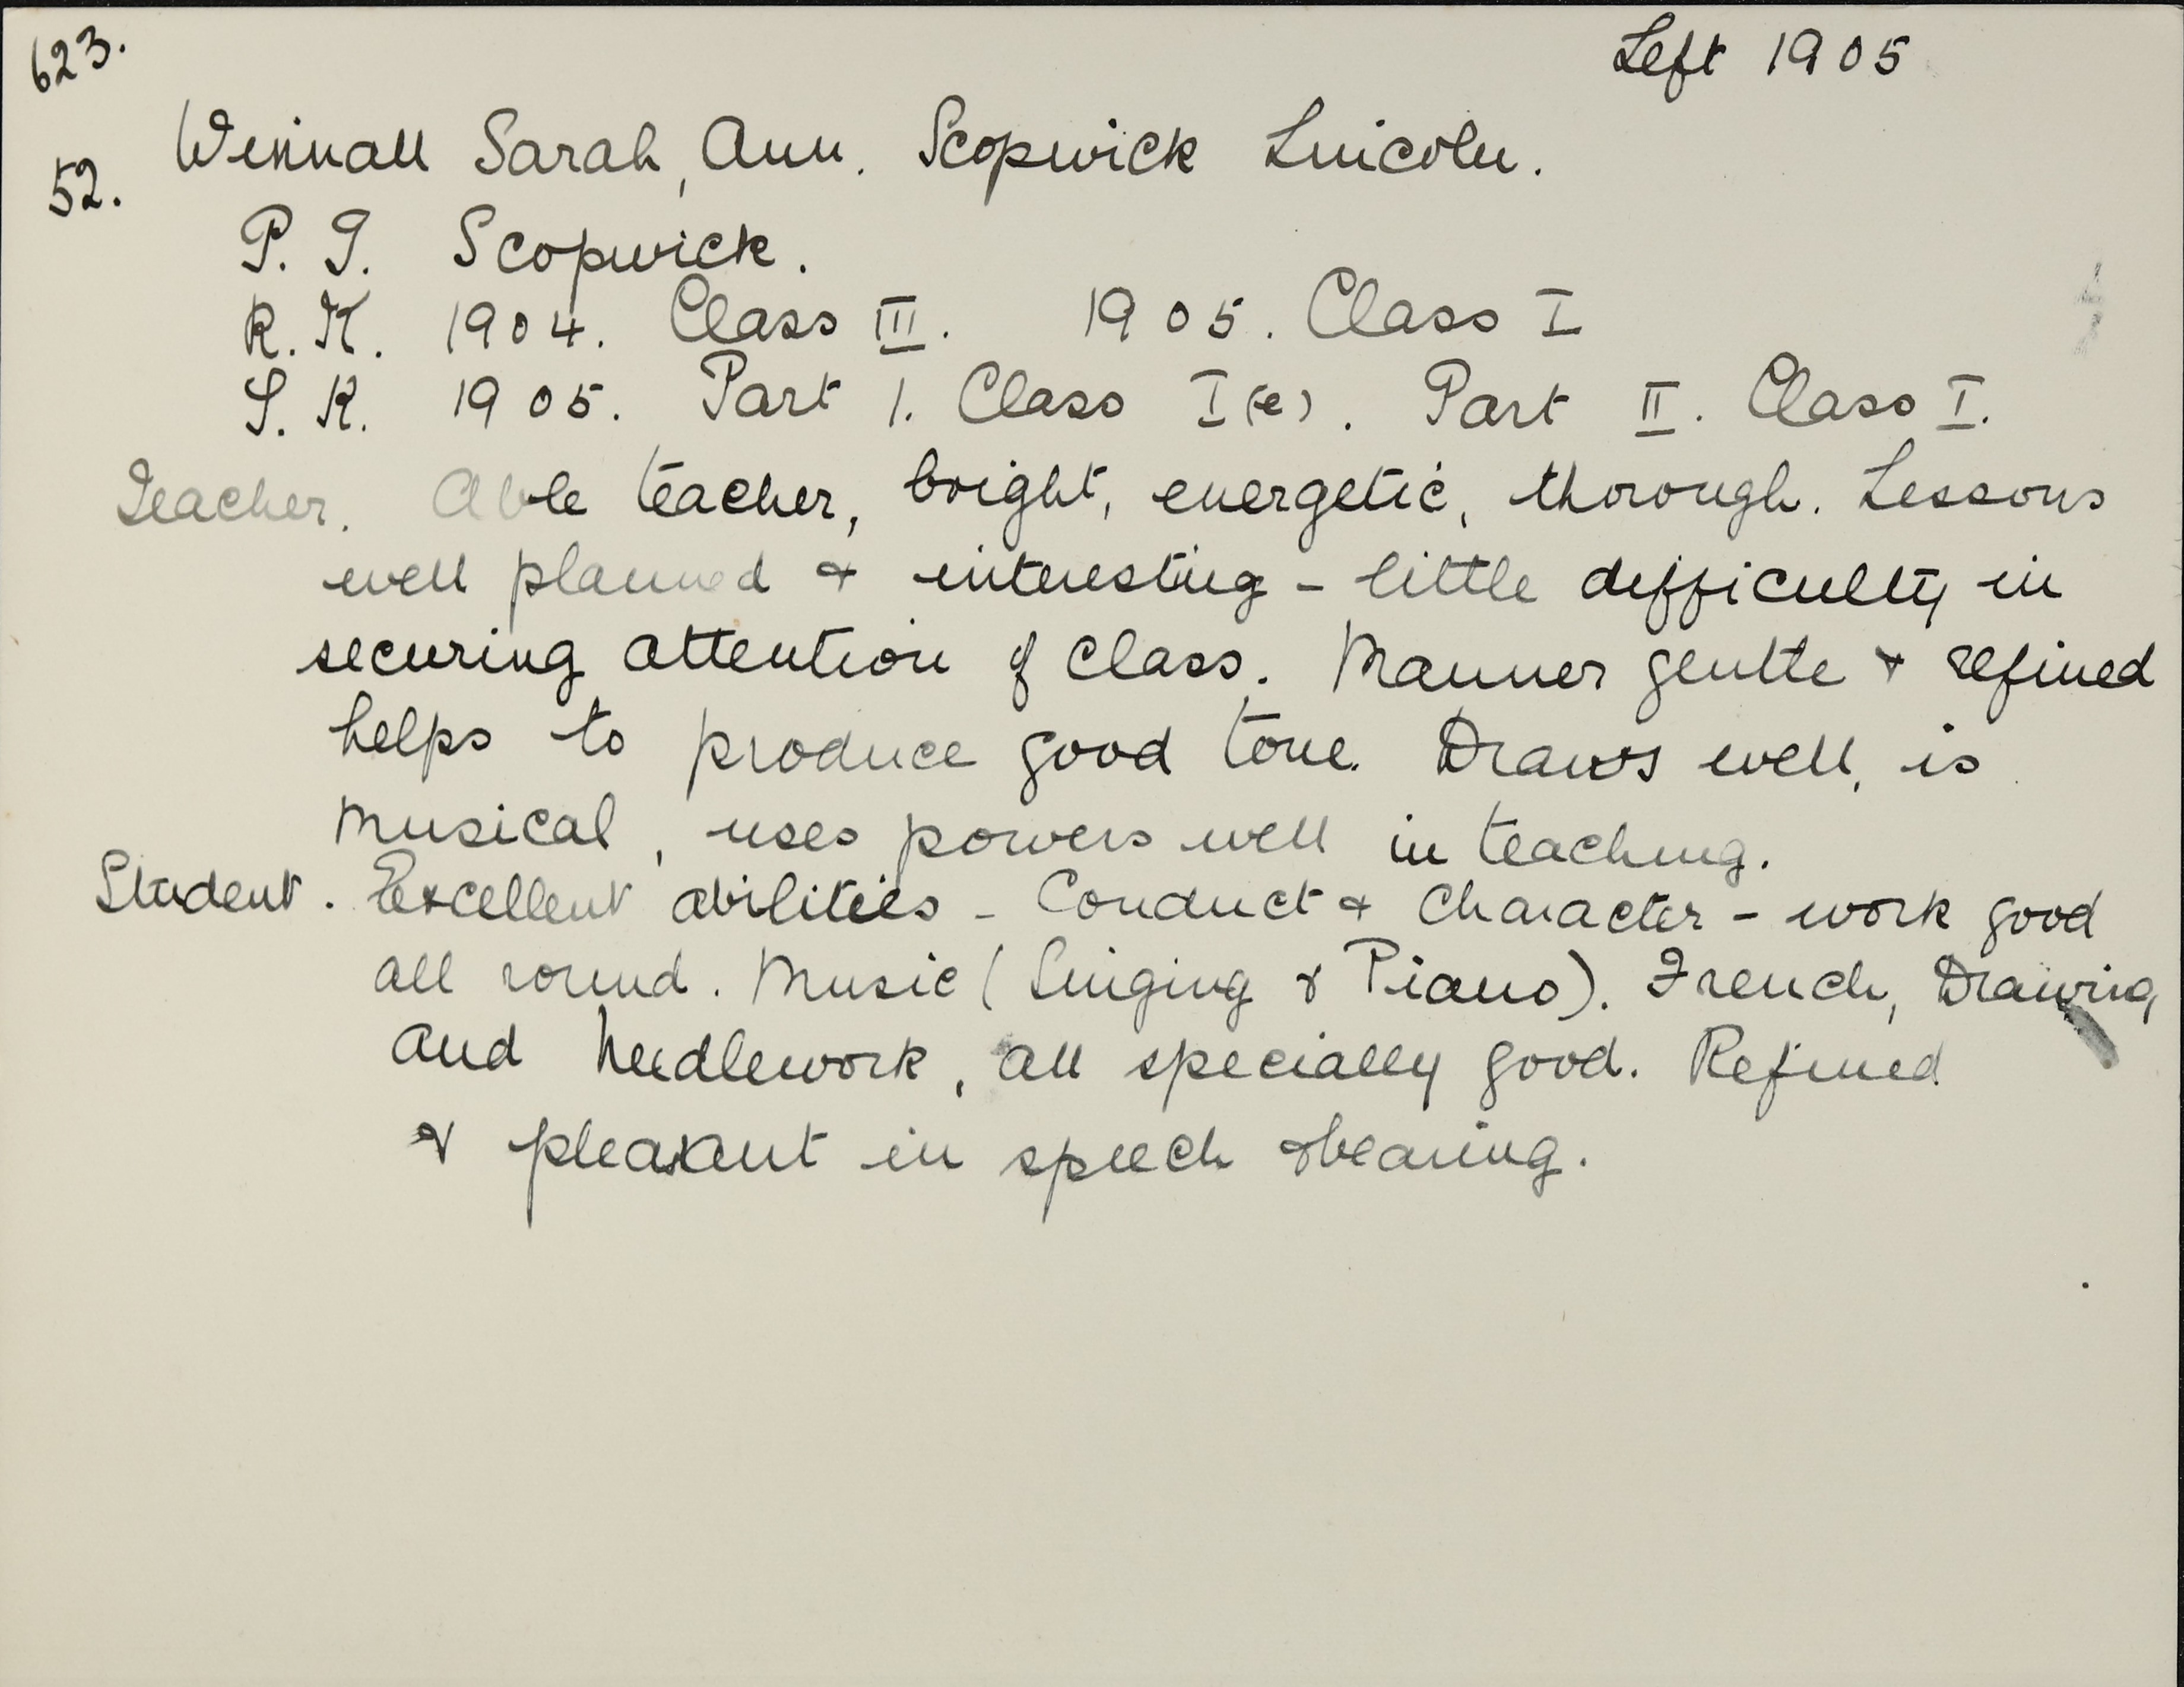 623.
Left 1905
52. Wennall Sarah, Ann. Scopwick Lincoln.
P. T. Scopwick.
R. K. 1904. Class III. 1905. Class I
S. K. 1905. Part 1. Class I (e). Part II. Class I.
Teacher. Able teacher, bright, energetic, thorough. Lessons
well planned & interesting - little difficulty in
securing attention of class. Manner gentle & refined
helps to produce good tone. Draws well, is
musical, uses powers well in teaching.
Student. Excellent abilities - Conduct & Character - work good
all round. Music (Singing & Piano). French, Drawing
and Needlework, all specially good. Refined
& pleasant in speech & bearing.